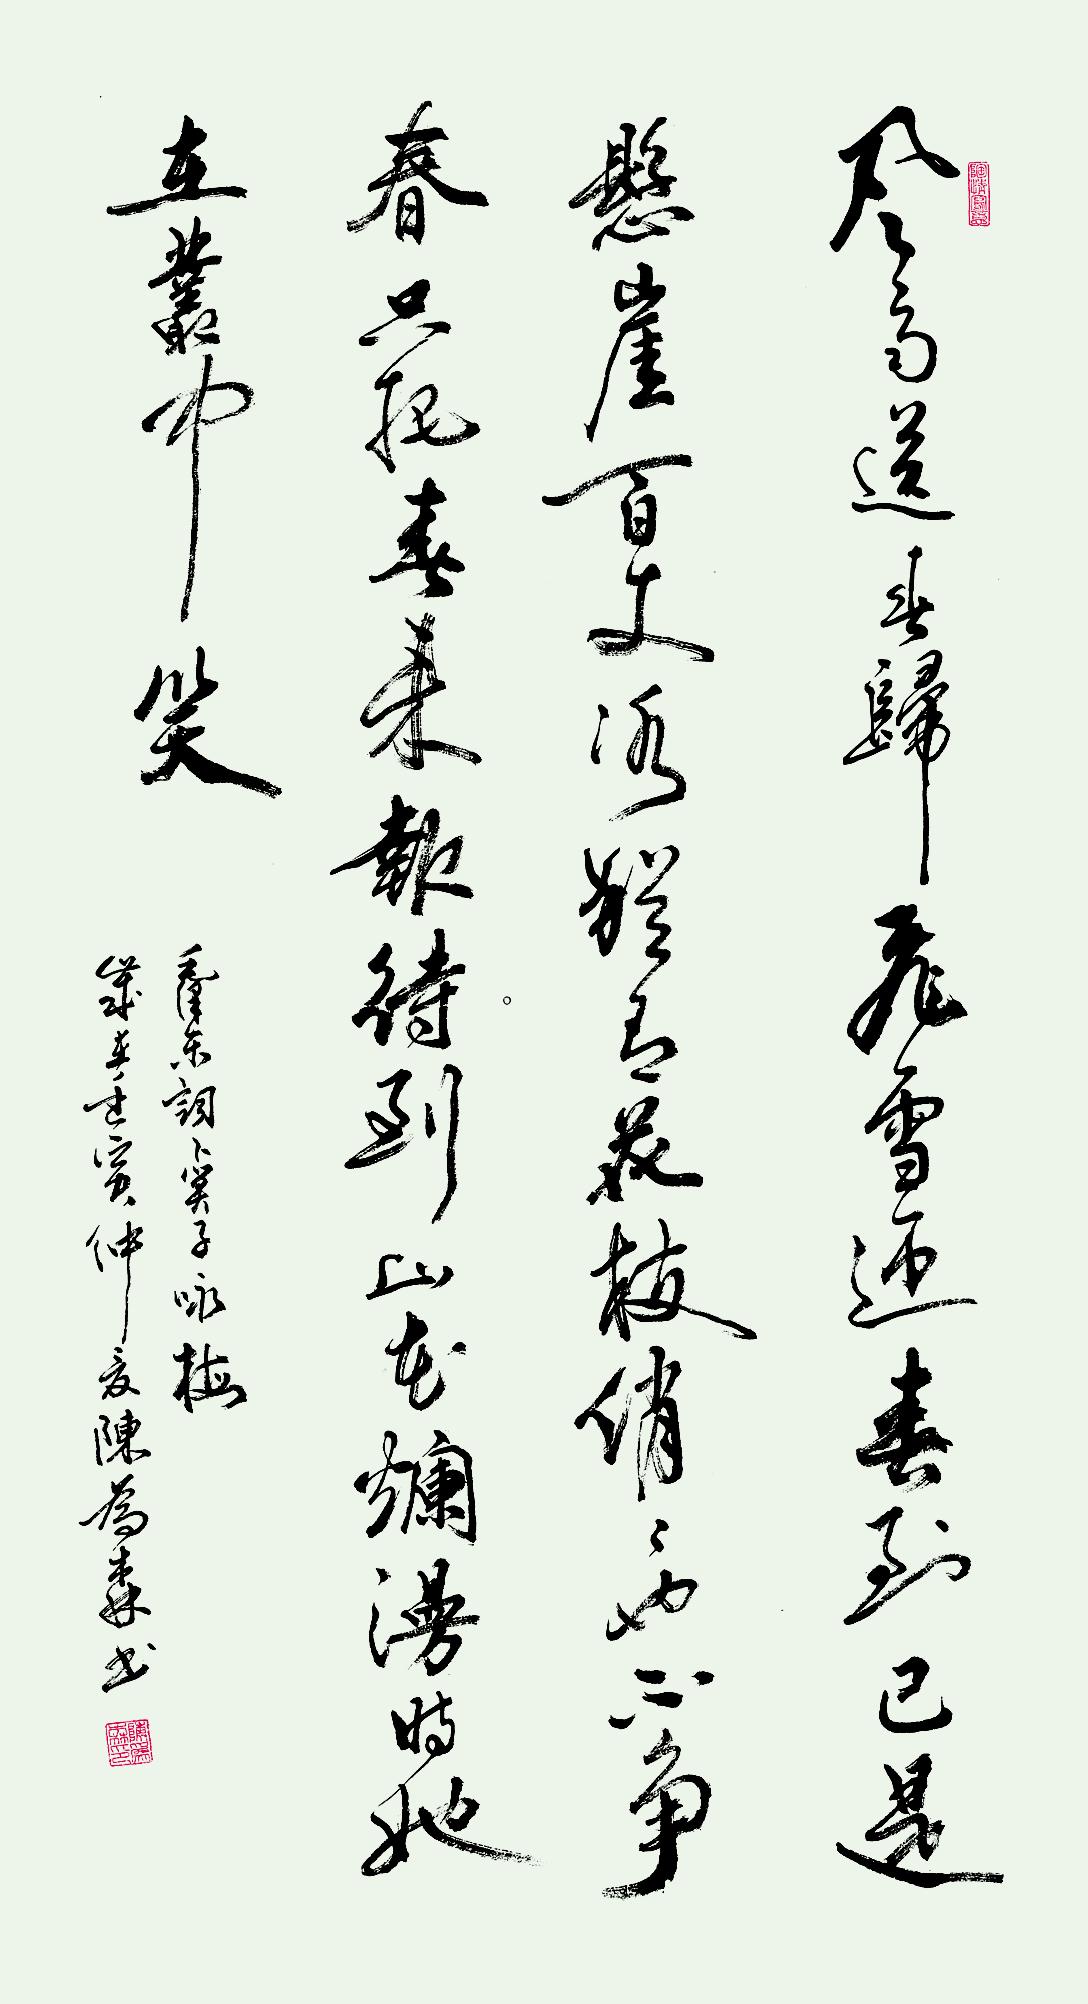 风雨送春歸飛雪迎春到已是
懸崖百丈冰猶有花枝俏〻也不争
春只把春来報待到山花爛漫時她
在叢中笑
毛澤东詞卜算子咏梅
歲在壬寅仲夏陳為森书